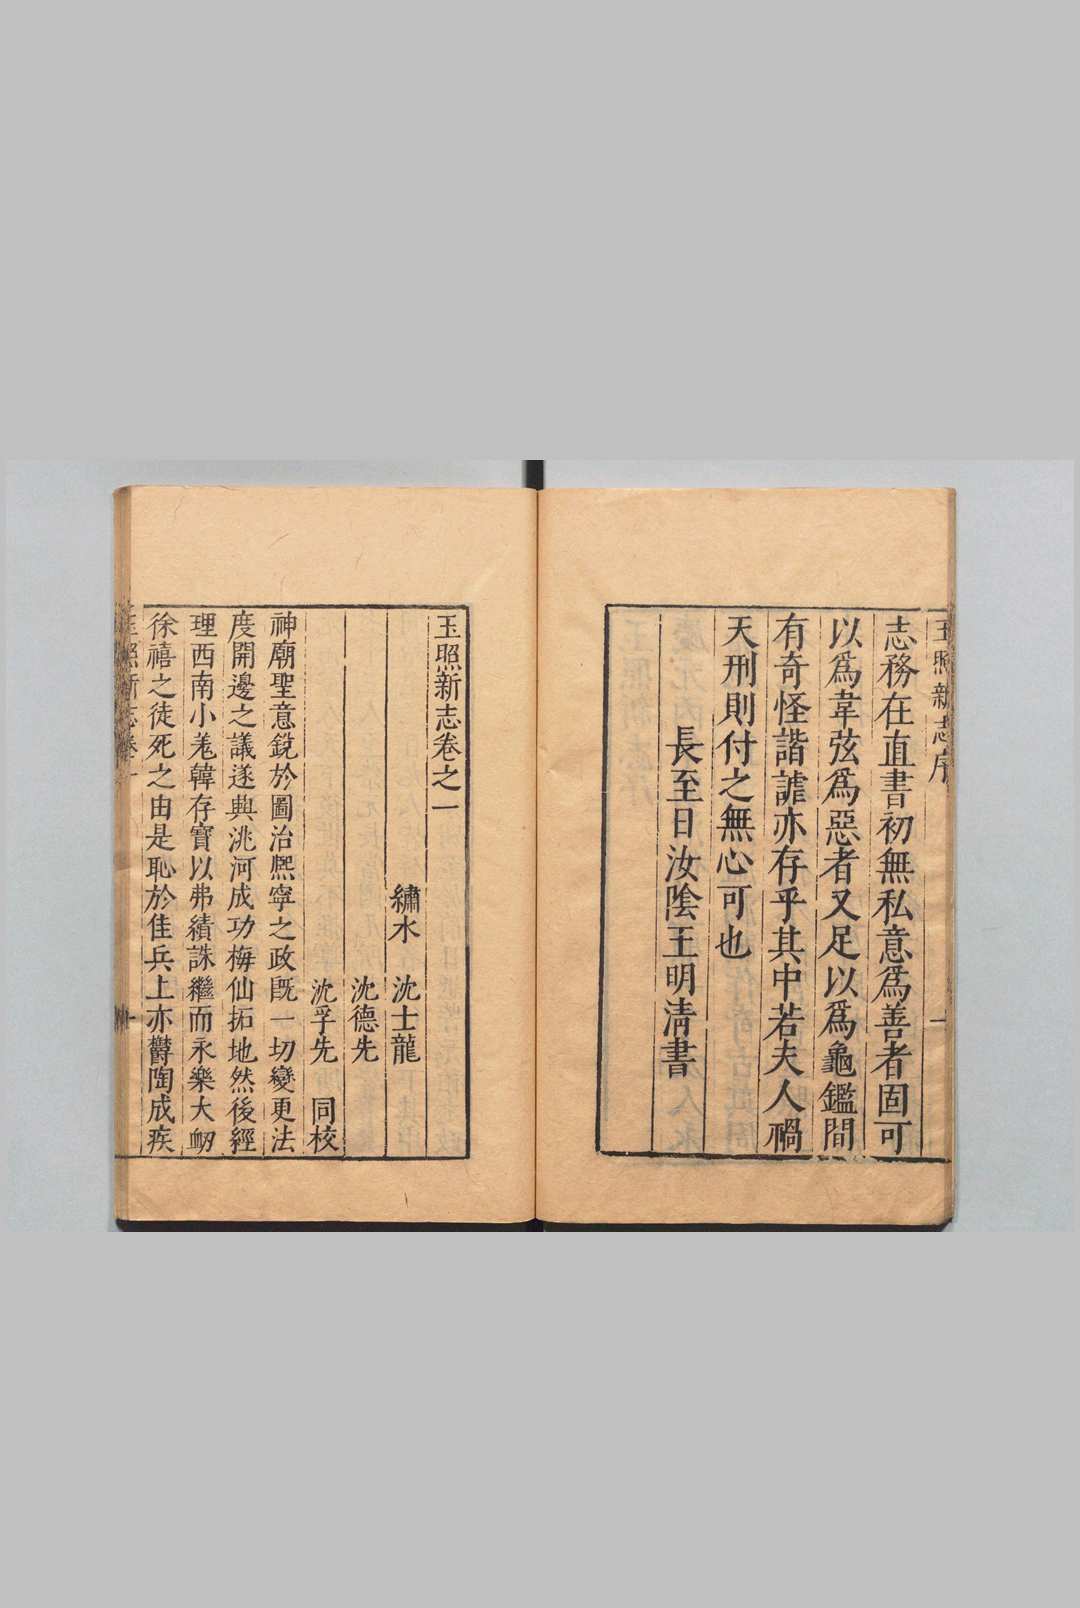 玉照新志序
一
志務在直書初無私意爲善者固可
以爲韋弦爲惡者又足以爲龜鑑間
有奇怪諧謔亦存乎其中若夫人禍
天刑則付之無心可也
長至日汝陰王明清書
玉照新志卷之一
繡水 沈士龍
沈德先
沈孚先 同校
神廟聖意銳於圖治熈寧之政旣一切變更法
度開邊之議遂興洮河成功梅仙拓地然後經
理西南小羗韓存寶以弗績誅繼而永樂大衂
徐禧之徒死之由是恥於佳兵上亦欝陶成疾
玉照新志卷一